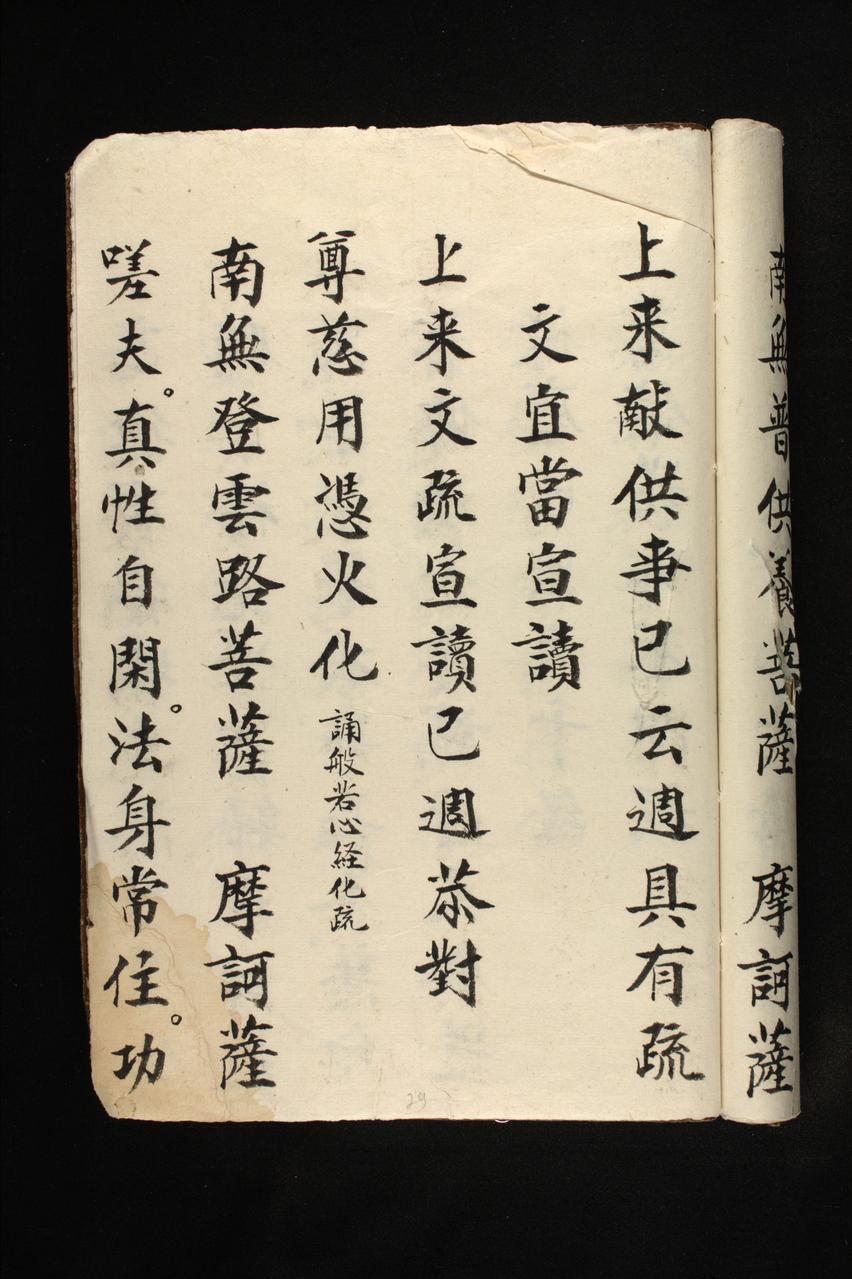 南無普供養菩薩　摩訶薩
上来献供事已云週具有疏
文宜當宣讀
上来文疏宣讀已週恭對
尊慈用憑火化 誦般若心経化疏
南無登雲路菩薩　摩訶薩
嗟夫。真性自閑。法身常住。功
29